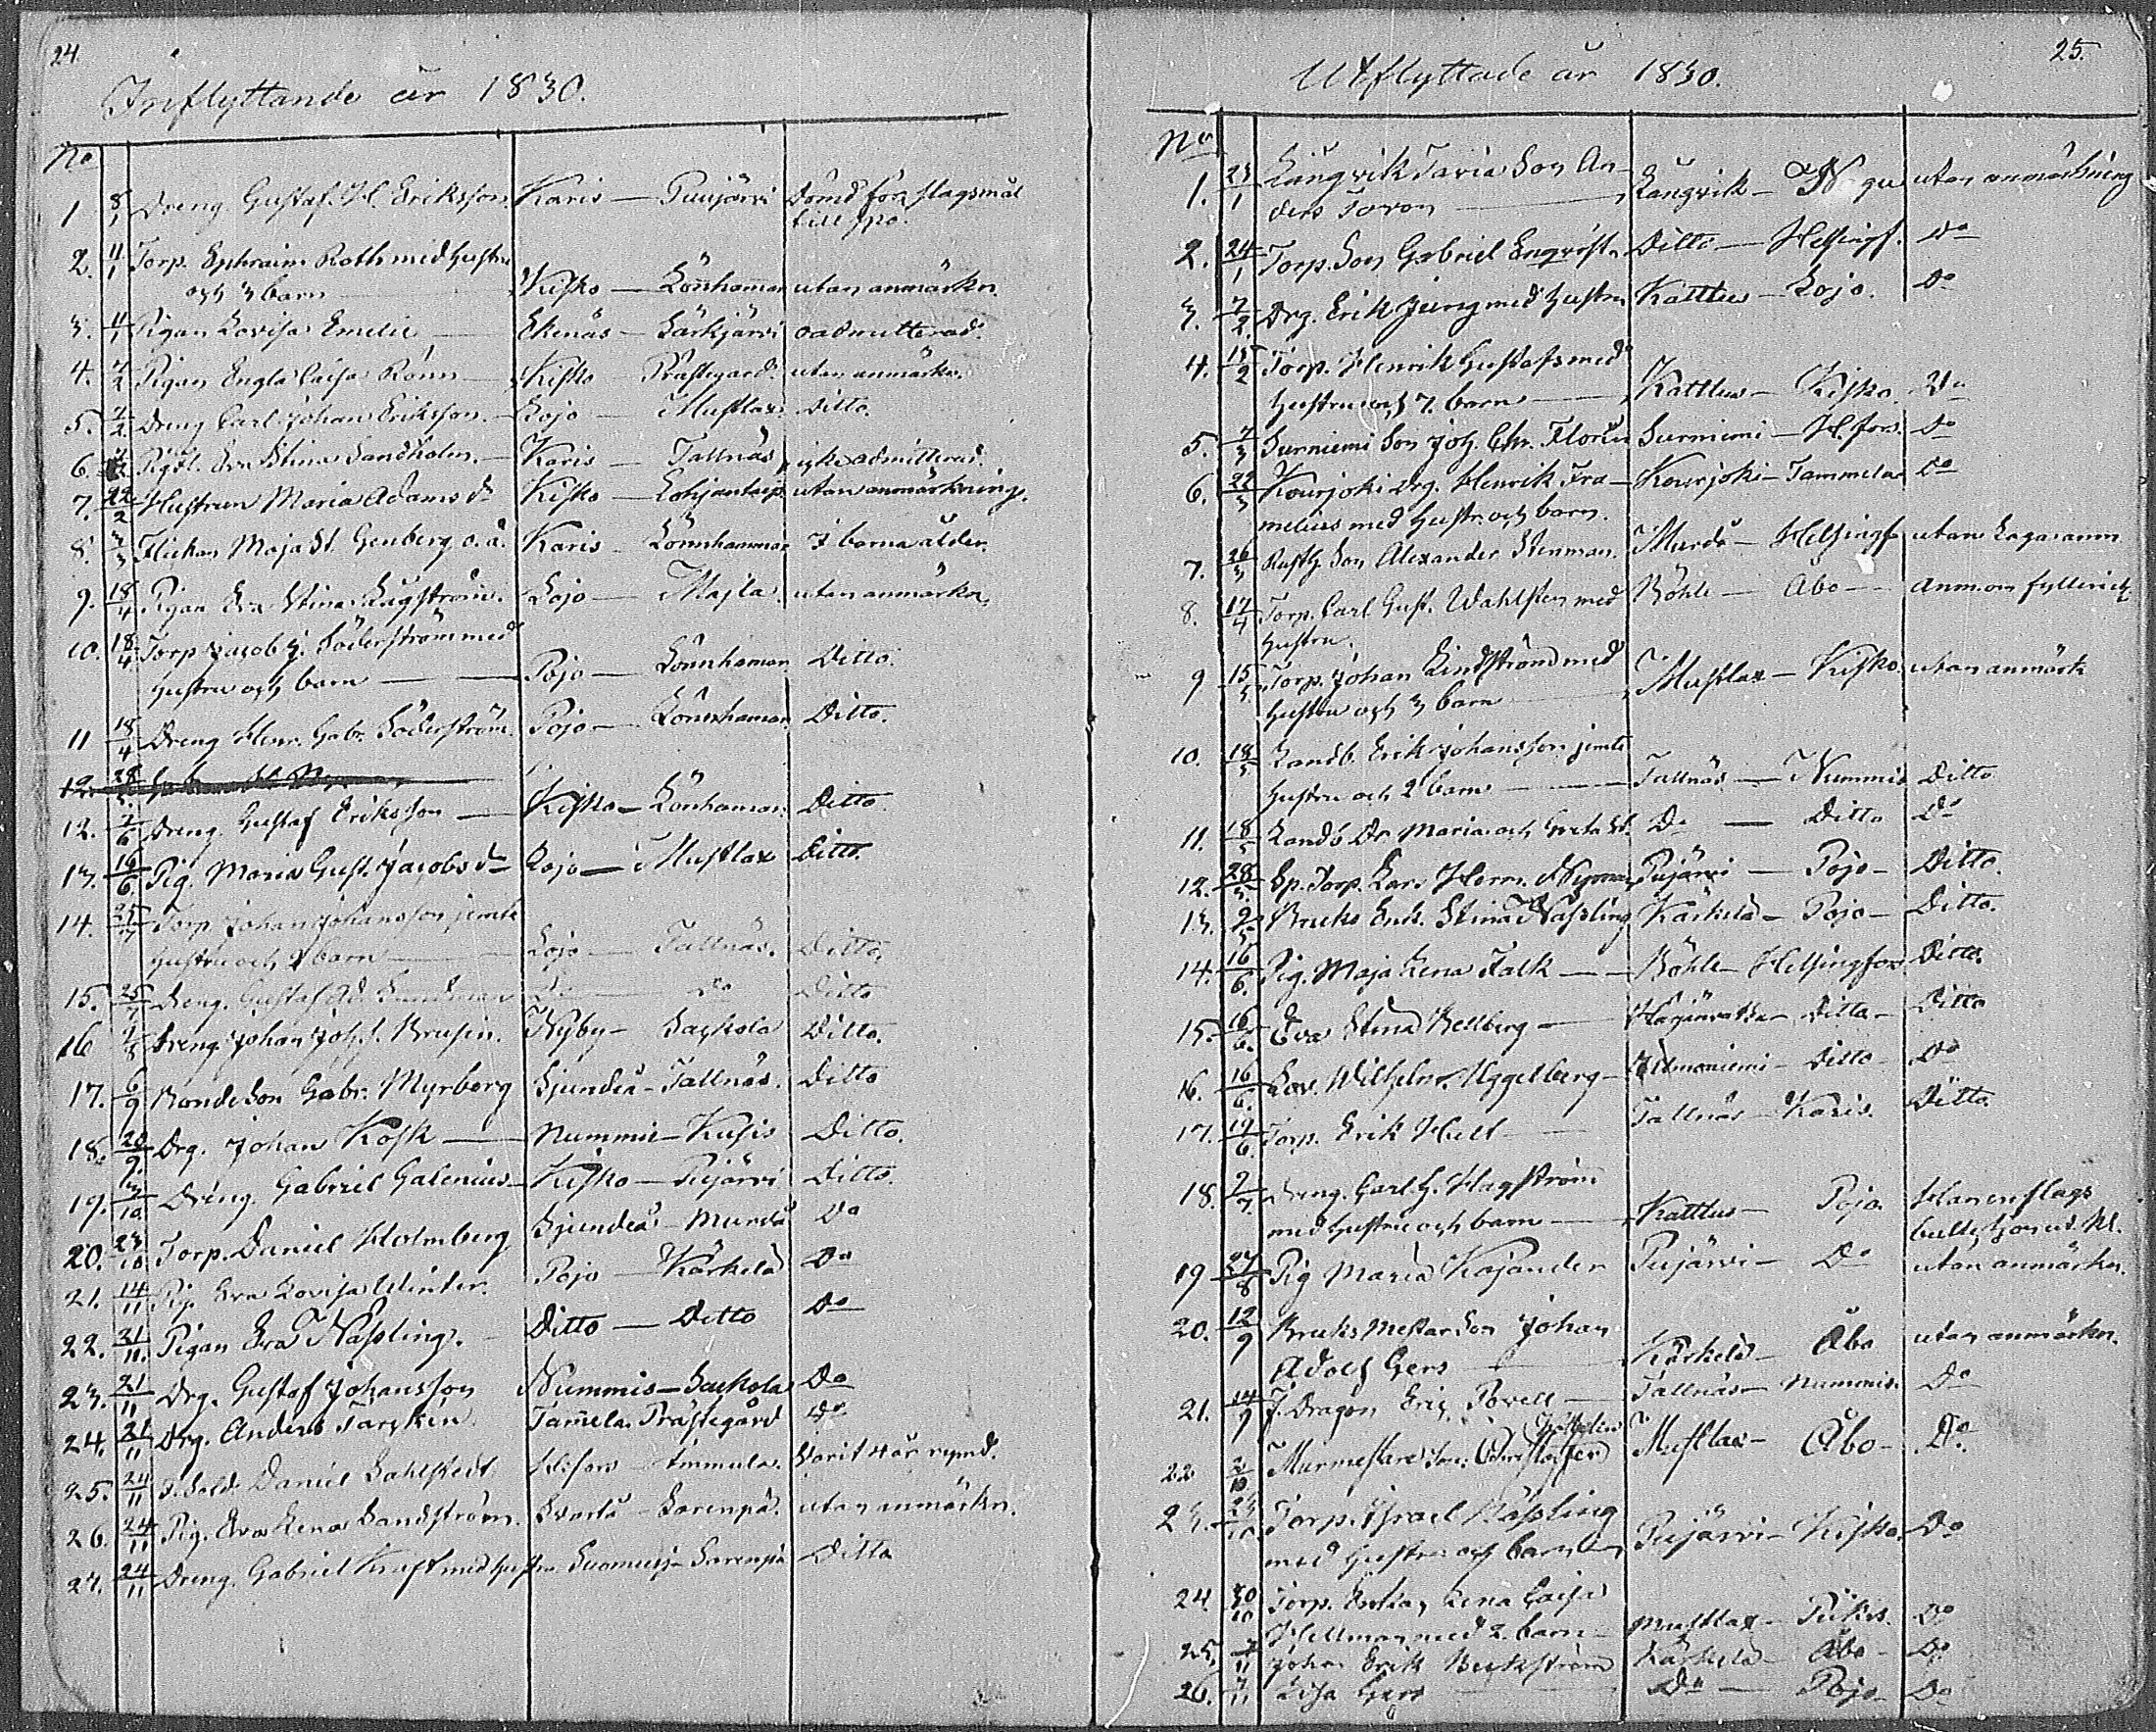 24
Inflyttande år 1830.
No
1 8/1 Dreng Gustaf H. Eriksson Karis — Puujärvi Dömd för slagsmål
till
2. 11/1 Torp. Ephraim Roth med hustru
och 3 barn — Kisko — Lönnhamar utan anmärkn.
3. 11/1 Pigan Lovisa Emelie — Ekenäs — Särkjärvi oadmitterad.
4. 7/2 Pigan Engla Caisa Rönn — Kisko — Prästegård. utan anmärkn.
5. 7/2 Dreng Carl Johan Eriksson. — Lojo — Mustlax Ditto.
6. Eva Stina Sandholm. — Karis — Tallnäs icke admitterad.
7. 22/2 Hustrun Maria Adams dr Kisko — utan anmärkning.
8. 3/3 Flickan Maja St. Genberg o. ä. Karis — Lönnhammar I barna ålder.
9. 18/4 Pigan Eva Stina Lugström. Lojo — Majla. utan anmärkn.
10. 18/4 Torp Jacob J. Söderström med
hustru och barn — Pojo — Lönnhamar Ditto.
11 18/4 Dreng Henr. Gabr. Söderström. Pojo — Lönnhamar Ditto.
12. 28/5
12. 2/6 Dreng. Gustaf Eriksson — Kisko — Lönhamar Ditto
13. 16/6 Pig. Maria Gust. Jacobs dr Lojo — Mustlax Ditto.
14. 25/7 Torp Johan Johansson jemte
hustru och 2 barn — Lojo — Tallnäs. Ditto,
15. 25/7 Dreng. Gustaf Ad. Sundman Do — Do Ditto
16 Dreng Johan Joh. S. Brusin. Nyby — Sackola Ditto.
17. 6/9 Bonde Son Gabr. Myrberg Sjundeå — Tallnäs. Ditto
18. 20/9. Drg. Johan Kosk — Nummis — Kusis Ditto.
19. 3/10 Dreng. Gabriel Galenius — Kisko — Pujärvi Ditto.
20. 23/10 Torp. Daniel Holmberg Sjundeå — Murdå Do
21. 14/11 Pig. Eva Lovisa Winter. Pojo — Kärkelä Do
22. 21/11. Pigan Eva Nässling. — Ditto — Ditto Do
23. 21/11 Drg. Gustaf Johansson Nummis — Sackola Do
24. 21/11 Drg. Anders Tarckin Tamela. Prästegård Do
25. 24/11 Daniel Sahlstedt H:fors — Immula. Varit 4 år rymd.
26. 24/11 Pig. Eva Lena Sandström. Svartå — Sarenpä. utan anmärkn.
27. 24/11 Dreng. Gabriel Kraft med hustru Suomusj. — Sarenpä Ditto
25.
Utflyttade år 1830.
No
1. 23/1 Långvik Tavia Son An-
ders Toron — Långvik — utan anmärkning
2. 24/1 Torp. Son Gabriel Enqvist Ditto — Helsingf. Do
3. 7/2. Drg. Erik Jung med hustru Kattlus — Lojo. Do
4. 15/2 Torp. Henrik Gustafs med
hustru och 7. barn — Kattlus — Kisko Do
5. 7/3 Surniemi Son Joh. Chr. Florin Surniemi — H.fors. Do
6. 22/3 Kourjoki Drg. Henrik Fra- Kourjoki — Tammela Do
melius med hustr. och barn.
7. 26/3 Rusth. Son Alexander Stenman. Murdå — Helsingf. utan
8. 17/4 Torp. Carl Gust. Wahlsten med Böhle — Åbo — Anm. om fylleri
hustru.
9 15/5 Torp. Johan Lindström med
hustru och 3 barn — Mustlax — Kisko utan anmärk
10. 18/5 Landb. Erik Johansson jemte
hustru och 2 barn — Tallnäs — Nummis Ditto
11. 18/5 Landb Dr Maria och Greta St. Do — Ditto Do
12. 28/5. Sp. Torp. Lars Herm. Nyman Pujärvi — Pojo — Ditto.
13. 9/5 Bruks Enk. Stina Nässling Kärkelä — Pojo — Ditto.
14. 16/6. Pig. Maja Lena Falk — Böhle — Helsingfors Ditto.
15. 16/6. Eva Stina Kellberg — Ditto — Ditto
16. 16/6. Lov. Wilhelm. Uggelberg — Ditto — Do
17. 19/6 Torp. Erik Hult — Tallnäs — Karis. Ditto.
18. 2/7. Dreng. Carl G. Hagström
med hustru och barn — Kattlus — Pojo.
19 27/8 Pig Maria Kajander Pujärvi — Do utan anmärkn.
20. 12/9 Bruks Mestar Son Johan
Adolf Gers — Kärkelä — Åbo utan anmärkn.
21. 14/9 f. Dragon Eric Povell — Tallnäs — Nummis. Do
22 2/10 Murmestare Mustlax — Åbo — Do
23. 23/10 Torp. Israel Nässling
med hustru och barn — Pujärvi — Kisko. Do
24 30/10 Torp. Enkan Lena Caisa
Hellman med 2. barn — Mustlax — Pikis. Do
25. 7/11 Johan Erik Beckström Kärkelä — Åbo — Do
26. 7/11 Lisa Gers — Do — Pojo — Do